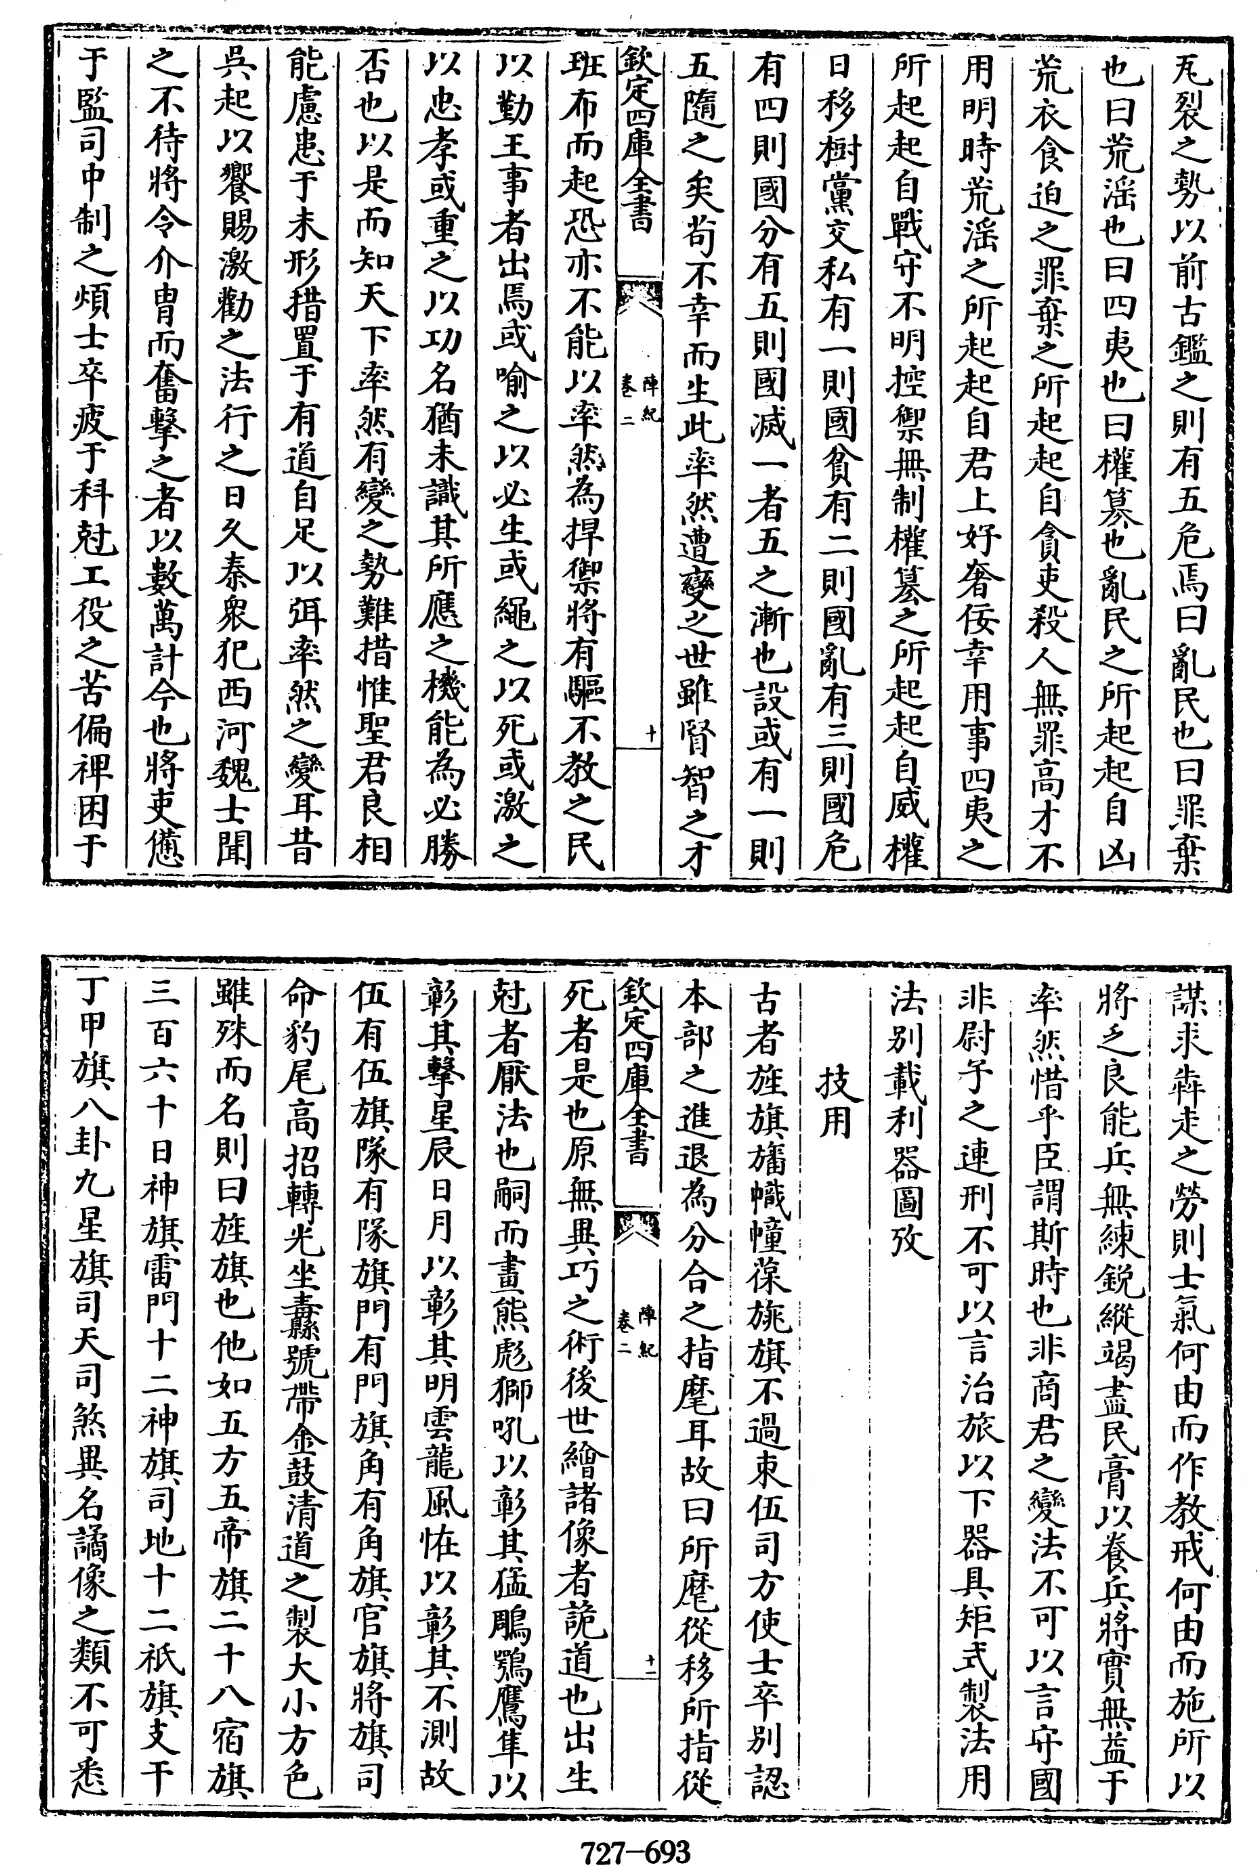 瓦裂之勢以前古鑑之則有五危焉曰亂民也曰罪棄
也曰荒滛也曰四夷也曰權篡也亂民之所起起自凶
荒衣食迫之罪棄之所起起自貪吏殺人無罪高才不
用明時荒滛之所起起自君上好奢佞幸用事四夷之
所起起自戰守不明控禦無制權篡之所起起自威權
日移樹黨交私有一則國貧有二則國亂有三則國危
有四則國分有五則國滅一者五之漸也設或有一則
五隨之矣茍不幸而生此率然遭變之世雖賢智之才
欽定四庫全書
陣紀
卷二
十
班布而起恐亦不能以率然為捍禦將有驅不教之民
以勤王事者出焉或喻之以必生或繩之以死或激之
以忠孝或重之以功名猶未識其所應之機能為必勝
否也以是而知天下率然有變之勢難措惟聖君良相
能慮患于未形措置于有道自足以弭率然之變耳昔
吳起以饗賜激勸之法行之日久秦衆犯西河魏士聞
之不待將令介胄而奮擊之者以數萬計今也將吏憊
于監司中制之煩士卒疲于科尅工役之苦偏裨困于
謀求犇走之勞則士氣何由而作教戒何由而施所以
將乏良能兵無練銳縱竭盡民膏以養兵將實無益于
率然惜乎臣謂斯時也非商君之變法不可以言守國
非尉子之連刑不可以言治旅以下器具矩式製法用
法别載利器圖攷
技用
古者旌旗旛幟幢葆旐旗不過束伍司方使士卒别認
本部之進退為分合之指麾耳故曰所麾從移所指從
欽定四庫全書
陣紀
卷二
十一
死者是也原無異巧之術後世繪諸像者詭道也出生
尅者厭法也嗣而畫熊彪獅吼以彰其猛鵰鶚鷹隼以
彰其擊星辰日月以彰其明雲龍風恠以彰其不測故
伍有伍旗隊有隊旗門有門旗角有角旗官旗將旗司
命豹尾高招轉光坐纛號帶金鼓清道之製大小方色
雖殊而名則曰旌旗也他如五方五帝旗二十八宿旗
三百六十日神旗雷門十二神旗司地十二祇旗支干
丁甲旗八卦九星旗司天司煞異名譎像之類不可悉
727-693